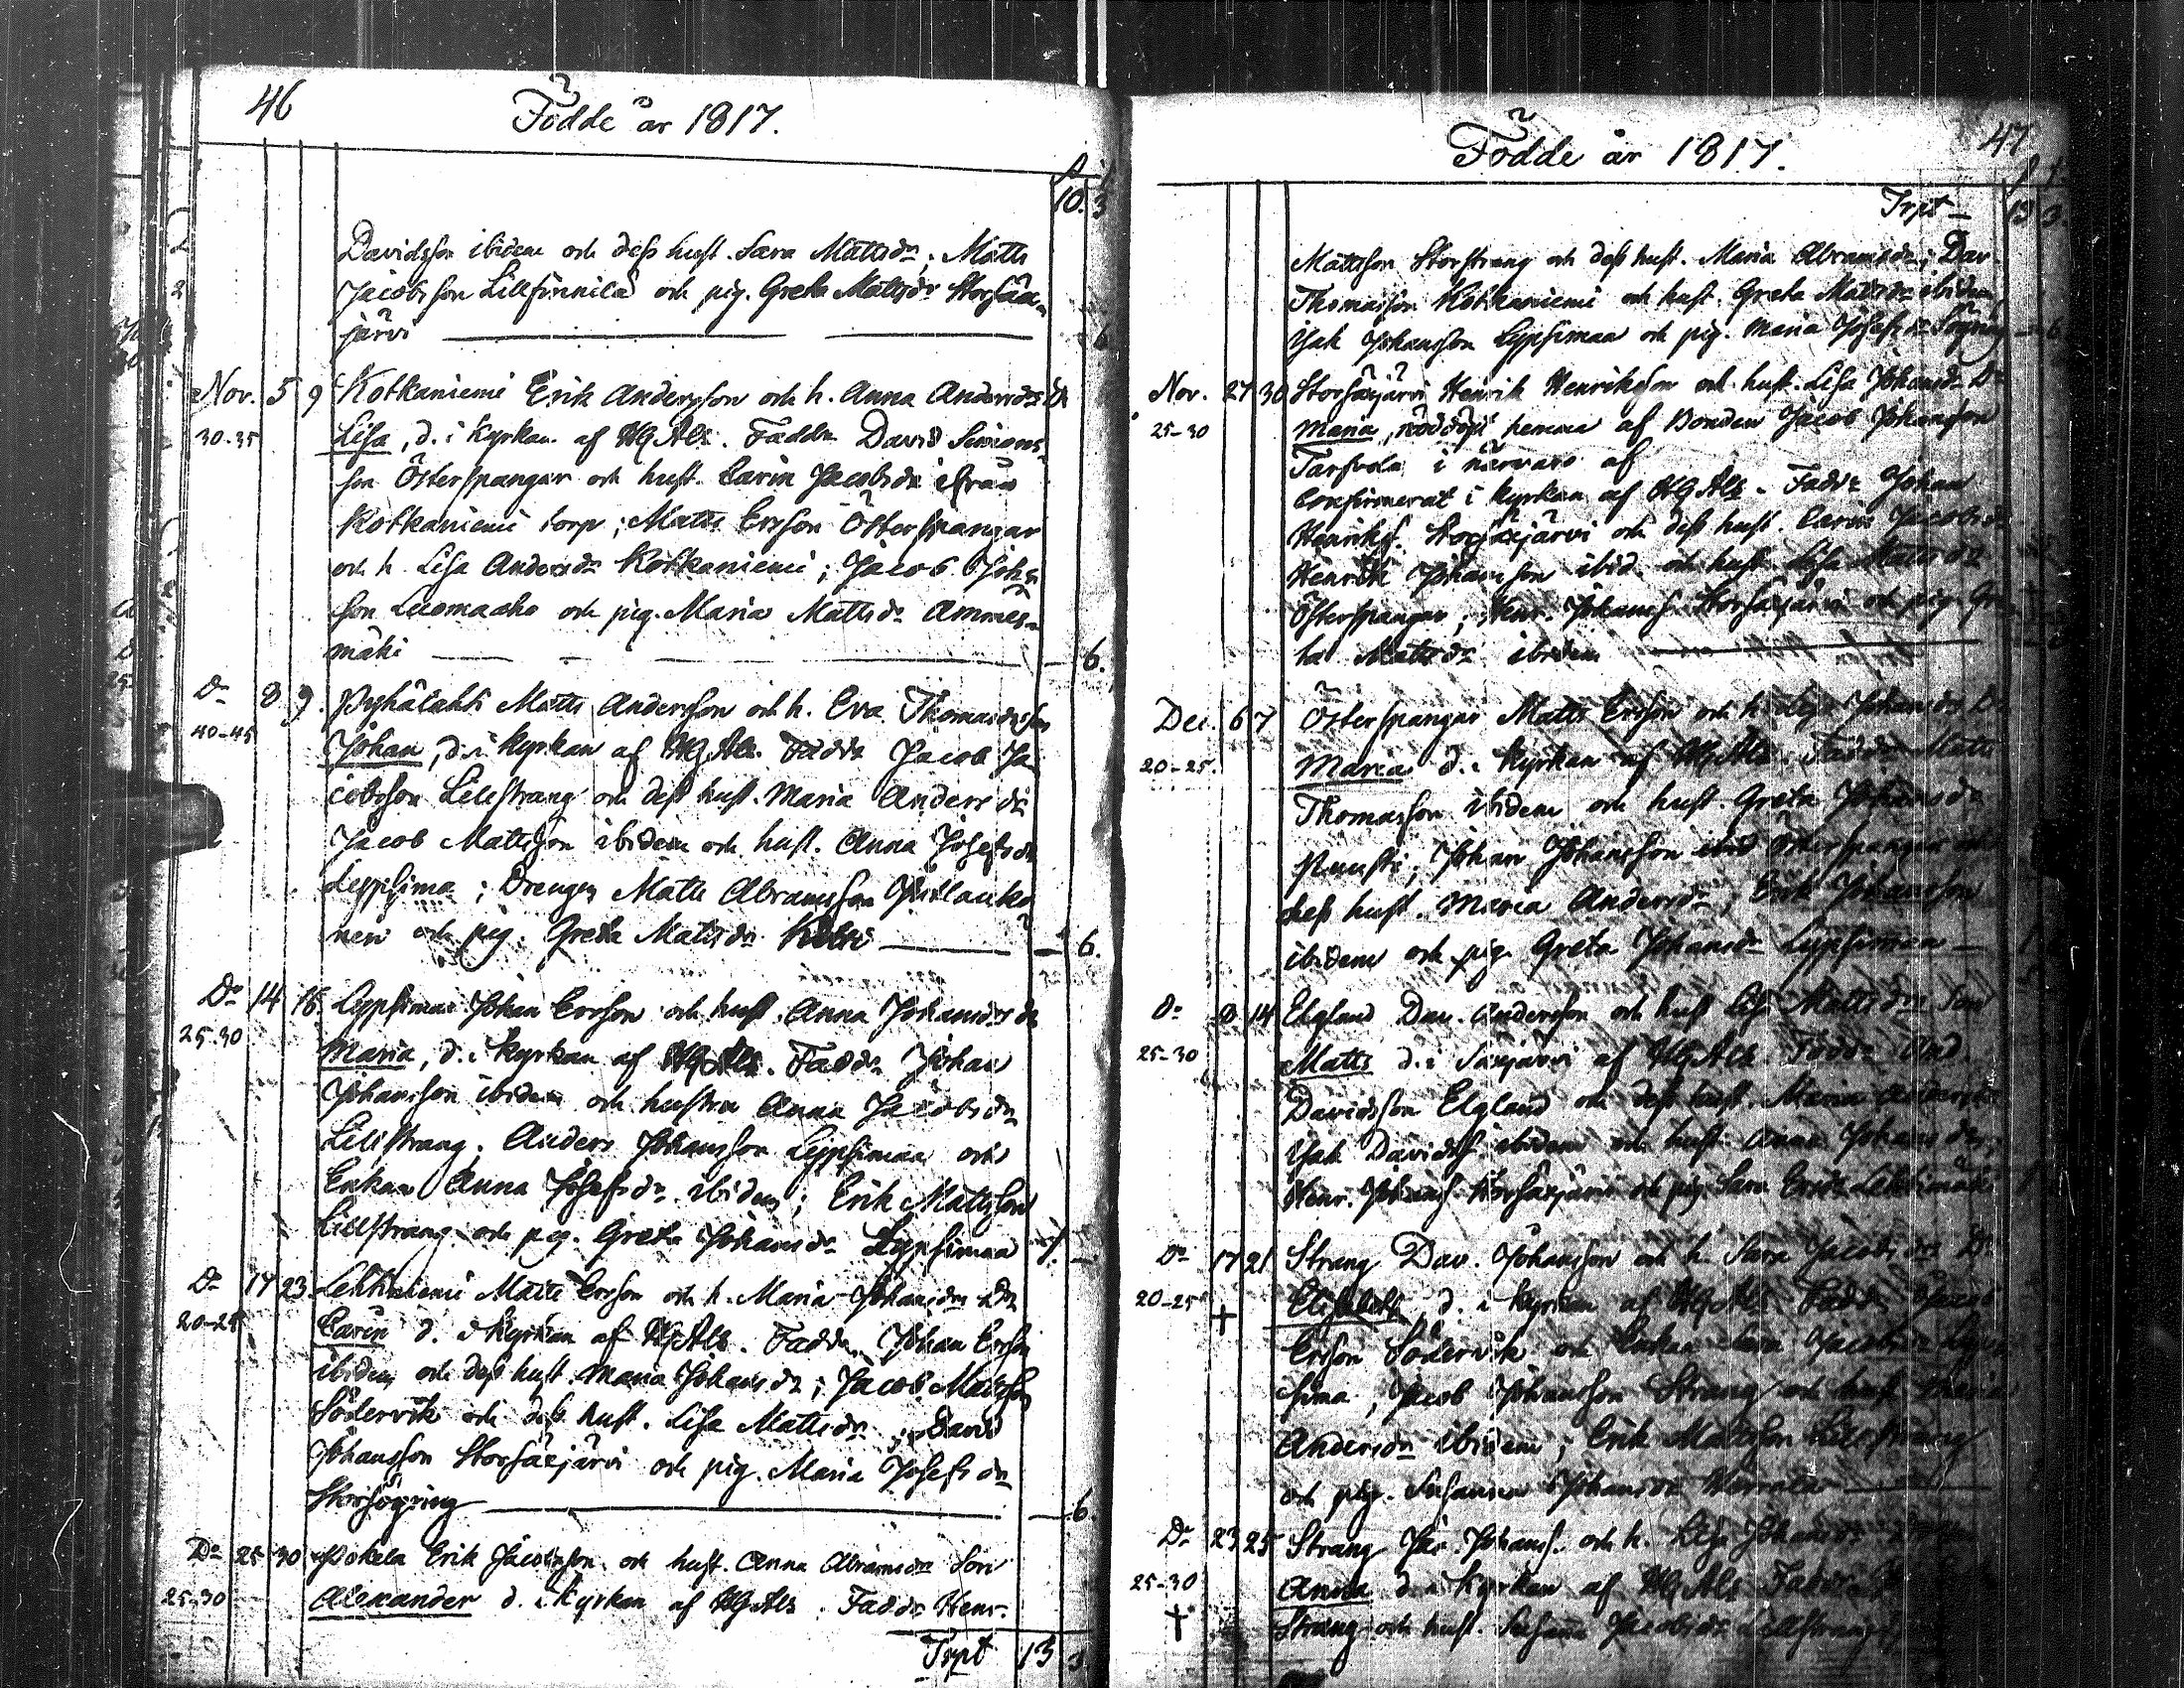 46
Födde år 1817.
10. 3
Davidsson ibidem och dess hust. Sara Mattsdr; Matts
Jacobsson Lillfinnilä och pig. Greta Mattsdr Storsäx
järvi — 6
Nov. 5 9 Kotkaniemi Erik Andersson och h. Anna Andersdr
30-35 Lisa, d. i kyrkan af Fadd. David Simons
son Österspangar och hust. Carin Jacobsdr ifrån
Kotkaniemi torp; Matts Ersson Österspangar
och h. Lisa Andersdr Kotkaniemi; Jacob Joha
son Luomaaho och pig. Maria Mattsdr Ammes
mäki — 6.
Do 8 9. Pyhälahti Matts Andersson och h. Eva Thomasdr
40-45 Johan, d. i kyrkan af Fadd. Jacob Ja
cobsson Lillstrang och dess hust. Maria Andersdr
Jacob Mattsson ibidem och hust. Anna Josefsdr
Leppsima; Drengen Matts Abramsson
nen och pig. Greta Mattsdr — 6.
Do 14 16. Lyppsimaa Johan Ersson och hust. Anna Johansdr dr
25-30 Maria, d. i kyrkan af Fadd. Johan
Johansson ibidem och hustru Anna Jacobsdr
Lillstrang. Anders Johansson Lyppsimaa och
Enkan Anna Josefsdr ibidem; Erik Mattsson
Lillstrang och pig. Greta Johansdr Lyppsimaa 1. –
Do 17 23. Lehtiniemi Matts Ersson och h. Maria Johansdr Dr
Carin d. i kyrkan af Fadd. Johan Ersson
ibidem och dess hust. Maria Johansdr; Jacob Mattsson
Södervik och dess hust. Lisa Mattsdr; David
Johansson Storsäxjärvi och pig. Maria Josefsdr
Storsögring — 6.
Do 25 30 Erik Jacobsson och hust. Anna Abramsdr Son
25-30 Alexander d. i kyrkan af Fadd. Henr.
Trpt 13 3.
Födde år 1817.
47
Trpt — 13 3.
Mattsson Storstrang och dess hust. Maria Abramsdr; Dav.
Thomasson Kotkaniemi och hust. Greta Mattsdr ibidem,
Isak Johansson Lyppsimaa och pig. Maria Josefsdr Sögring — 6
Nov. 27 30 Storsäxjärvi Henrik Henriksson och hust. Lisa Johansdr Dr
25-30 Maria, nöddöpt hemma af Bonden Jacob Johansson
i närvaro af
Confirmerat i kyrkan af Fadd. Johan
Henriks. Storsäxjärvi och dess hust. Carin Jacobsdr
Henrik Johansson ibid. och hust. Lisa Mattsdr
Österspangar; Henr. Johanss. Storsäxjärvi och pig. Gre
ta Mattsdr ibidem
Dec. 6 7 Österspangar Matts Ersson och h. Johansdr Dr
20-25. Maria d. i kyrkan af Fadd. Matts
Thomasson ibidem och hust. Greta Johansdr
Johan Johansson Österspangar och
dess hust. Maria Andersdr; Erik Johansson
ibidem och pig. Greta Johansdr Lyppsimaa —
Do 14 Elgland Dav. Andersson och hust. Lisa Mattsdr Son
25-30 Matts d. i Säxjärvi af Fadd. And.
Davidsson Elgland och dess hust. Maria Andersdr
Isak Davidss. ibidem och hust. Anna Johansdr;
Henr. Johanss. Storsäxjärvi och pig. Sara Ersdr
Do 17 21 Strang Dav. Johansson och h. Sara Jacobsdr Dr
20-25 † Elisabeth, d. i kyrkan af Fadd. Jacob
Ersson Södervik och Enkan Jacobsdr
sima; Jacob Johansson Strang och hust.
Andersdr ibidem; Erik Mattsson Lillstrang
och pig. Susanna Johansdr —
Do 23 25 Strang Johanss. och h. Lisa Johansdr
25-30 Anna d. i kyrkan af Fadd.
† Strang och hust. Susanna Jacobsdr Lillstrang